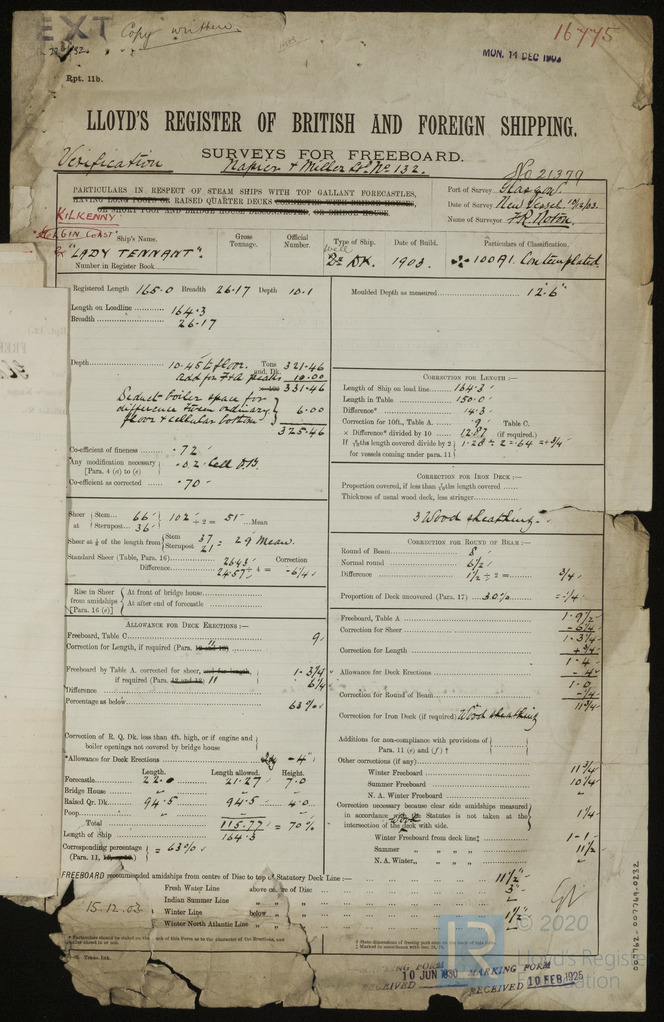 EXT Copy written.
16775
MON. 14 DEC 1903
Rpt. 11b.
LLOYD'S REGISTER OF BRITISH AND FOREIGN SHIPPING.
SURVEYS FOR FREEBOARD.
Verification Napier & Miller Ld No 132.
No 21379
PARTICULARS IN RESPECT OF STEAM SHIPS WITH TOP GALLANT FORECASTLES,
HAVING LONG POOPS OR RAISED QUARTER DECKS CONNECTED WITH BRIDGE HOUSE,
OR SHORT POOP AND BRIDGE HOUSE DISCONNECTED, OR BRIDGE HOUSE
Port of Survey Glasgow.
Date of Survey New Vessel
Name of Surveyor
KILKENNY
"ELGIN COAST"
Ship's Name. Gross Tonnage. Official Number. Type of Ship. Date of Build. Particulars of Classification.
"LADY TENNANT". Well Dk. 1903. 100A1. Contemplated.
Number in Register Book
Registered Length 165.0 Breadth 26.17 Depth 10.1
Moulded Depth as measured 12.6"
Length on Loadline 164.3
Breadth 26.17
Depth 10.45 to floor. Tons und. Dk. 321.46
add for F&A peaks 10.00
331.46
Deduct boiler space for
difference between ordinary
floor & cellular bottom 6.00
325.46
Co-efficient of fineness .72
Any modification necessary [Para. 4 (d) to (e)] .02 Cell D.B.
Co-efficient as corrected .70
CORRECTION FOR LENGTH :—
Length of Ship on load line 164.3
Length in Table 150.0
Difference* 14.3
Correction for 10ft., Table A. .9 Table C.
× Difference* divided by 10 1.287 (if required.)
If 6/10ths length covered divide by 2 1.28 ÷ 2 = .64 = + 3/4
for vessels coming under para. 11
CORRECTION FOR IRON DECK :—
Proportion covered, if less than 7/10ths length covered
Thickness of usual wood deck, less stringer
3 Wood sheathing.
Sheer at Stem 66 Sternpost 36 102 ÷ 2 = 51 Mean
Sheer at 1/8 of the length from Stem 37 Sternpost 21 = 29 Mean.
Standard Sheer (Table, Para. 16) 26.43 Correction
Difference 24.57 ÷ 4 = - 6 1/4
CORRECTION FOR ROUND OF BEAM :—
Round of Beam 8
Normal round 6 1/2
Difference 1 1/2 ÷ 2 = 3/4
Proportion of Deck uncovered (Para. 17) 30% = - 1/4
Rise in Sheer from amidships [Para. 16 (e)]
At front of bridge house
At after end of forecastle
ALLOWANCE FOR DECK ERECTIONS :—
Freeboard, Table C 9
Correction for Length, if required (Para. 12 and 13)
Freeboard by Table A. corrected for sheer, and for length,
if required (Para. 12 and 13) 11 1-3 1/4
Difference 6 1/4
Percentage as below 63%
Correction of R. Q. Dk. less than 4ft. high, or if engine and
boiler openings not covered by bridge house
*Allowance for Deck Erections - 4"
Length. Length allowed. Height.
Forecastle 22.0 21.27 7.0
Bridge House
Raised Qr. Dk. 94.5 94.5 4.0
Poop
Total 115.77 = 70%
Length of Ship 164.3
Corresponding percentage = 63%
(Para. 11, 12, and 13)
Freeboard, Table A 1-9 1/2
Correction for Sheer - 6 1/4
1-3 1/4
Correction for Length + 3/4
1-4
Allowance for Deck Erections - 4
1-0
Correction for Round of Beam - 1/4
11 3/4
Correction for Iron Deck (if required) Wood sheathing
Additions for non-compliance with provisions of
Para. 11 (e) and (f) †
Other corrections (if any)
Winter Freeboard 11 3/4
Summer Freeboard 10 1/4
N. A. Winter Freeboard
Correction necessary because clear side amidships measured
in accordance with the Statutes is not taken at the
intersection of the wood deck with side. 1 1/4
Winter Freeboard from deck line‡ 1-1
Summer " " " " 11 1/2
N. A. Winter " " " "
FREEBOARD recommended amidships from centre of Disc to top of Statutory Deck Line :— 11 1/2"
Fresh Water Line above centre of Disc 3"
Indian Summer Line " " "
Winter Line below " " 1 1/2"
Winter North Atlantic Line " " "
15.12.03
10 JUN 1930
RECEIVED
MARKING FORM
RECEIVED 10 FEB 1925
007762-007769-0232
LR © 2020
Lloyd's Register
Foundation